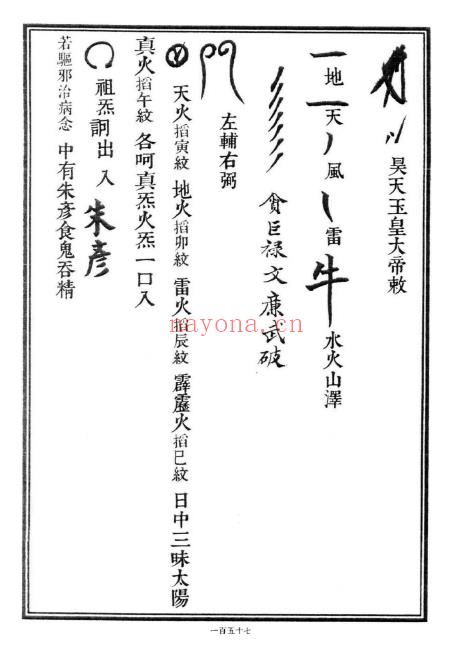 昊天玉皇大帝敕
一地一天丿風乀雷牛水火山澤
貪巨禄文廉武破
左輔右弼
天火搯寅紋 地火搯卯紋 雷火搯辰紋 霹靂火搯巳紋 日中三昧太陽
真火搯午紋 各呵真炁火炁一口入
祖炁訶出入 朱彥
若驅邪治病念 中有朱彥食鬼吞精
nayona.cn
一百五十七